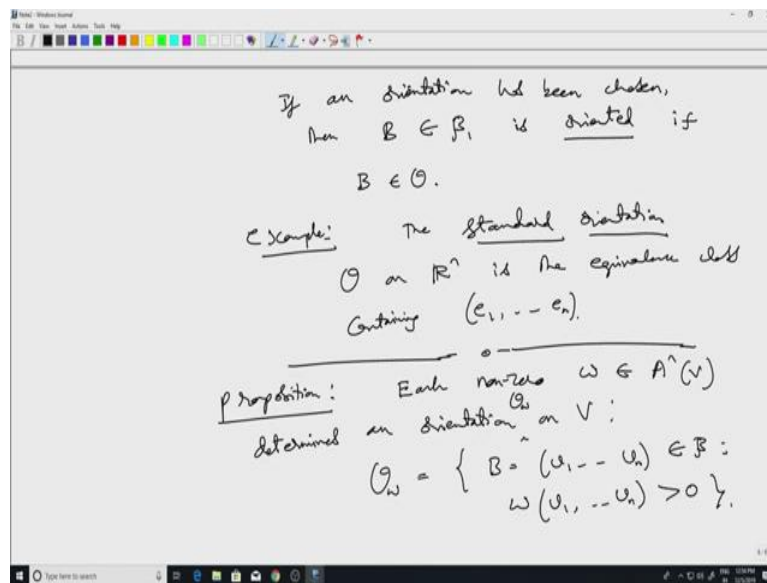 Note2 - Windows Journal
File Edit View Insert Actions Tools Help
If an orientation has been chosen,
then B ∈ β₁ is oriented if
B ∈ O.
Example: The standard orientation
O on ℝⁿ is the equivalence class
containing (e₁, -- eₙ).
Proposition: Each non-zero ω ∈ Aⁿ(V)
determines an orientation O_ω on V:
O_ω = { B = (v₁ -- vₙ) ∈ β :
ω(v₁, -- vₙ) > 0 }.
Type here to search